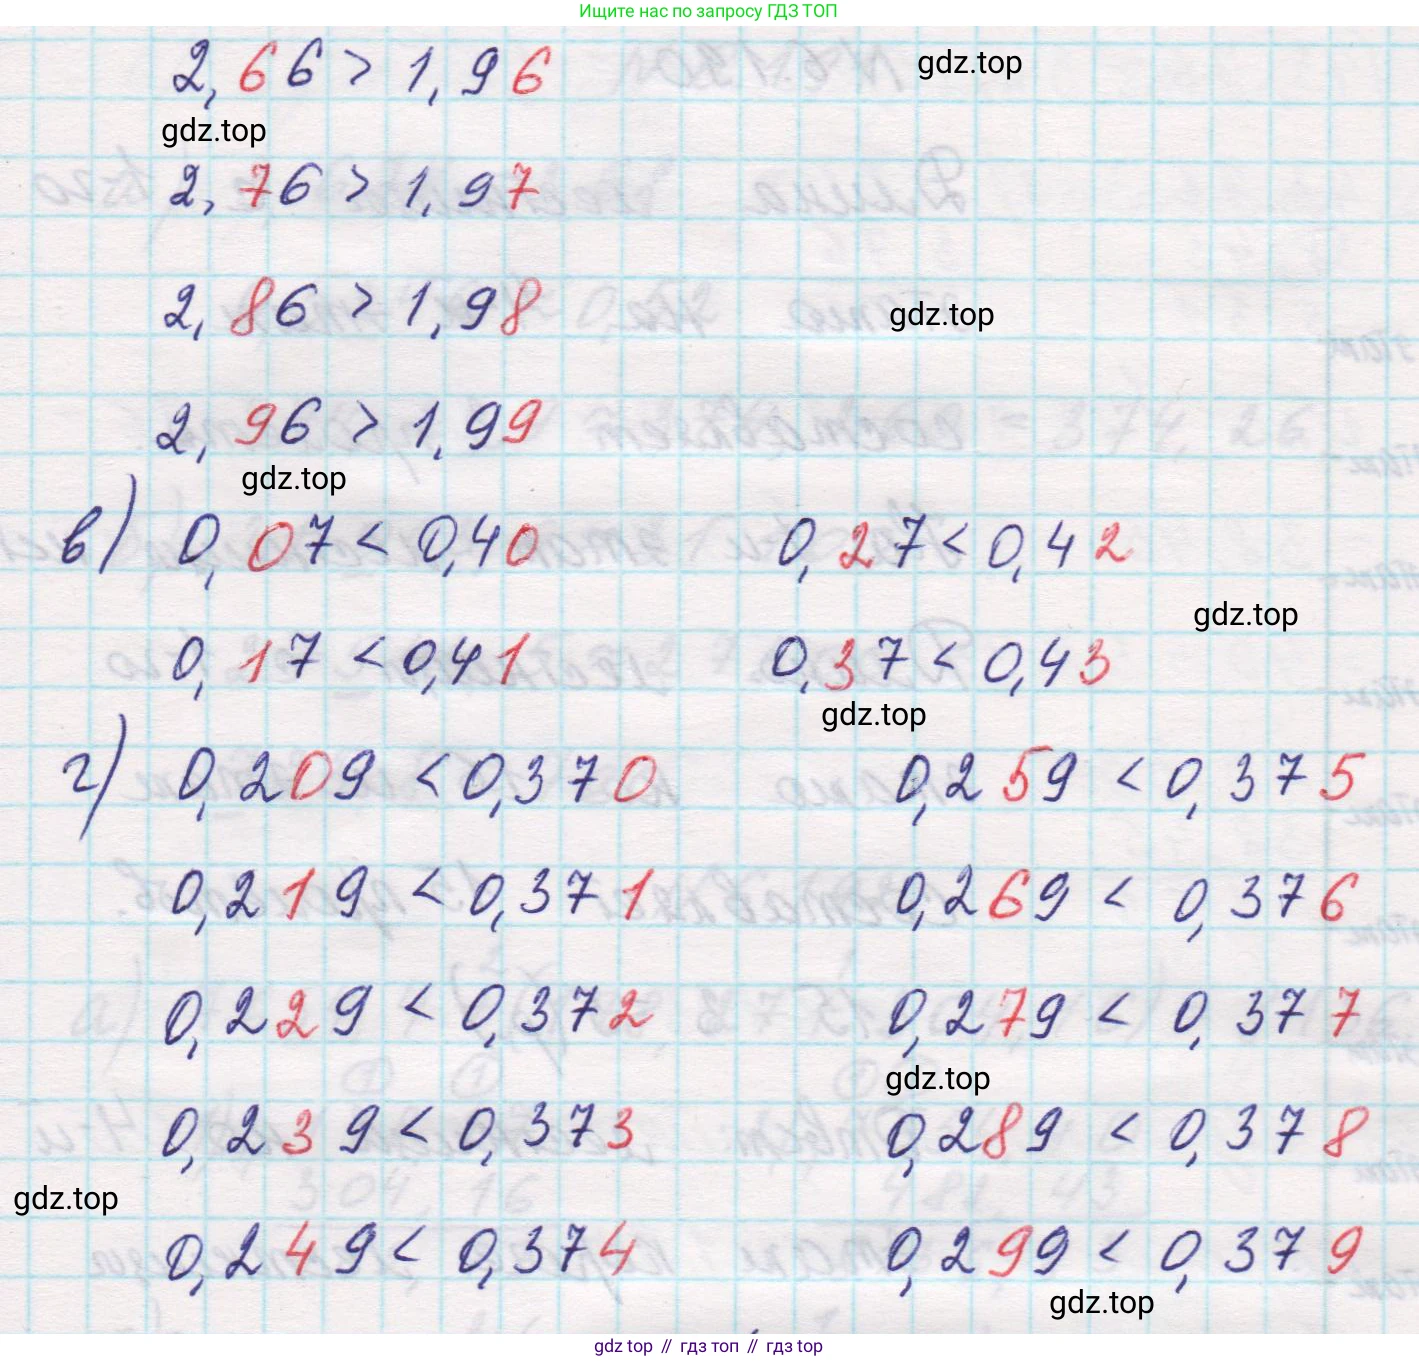 Ищите нас по запросу ГДЗ ТОП
2,66 > 1,96
gdz.top
gdz.top
2,76 > 1,97
2,86 > 1,98
gdz.top
2,96 > 1,99
gdz.top
в) 0,07 < 0,40 0,27 < 0,42
gdz.top
0,17 < 0,41 0,37 < 0,43
gdz.top
г) 0,209 < 0,370 0,259 < 0,375
0,219 < 0,371 0,269 < 0,376
0,229 < 0,372 0,279 < 0,377
gdz.top
0,239 < 0,373 0,289 < 0,378
gdz.top
0,249 < 0,374 0,299 < 0,379
gdz.top
gdz top // гдз топ // гдз top